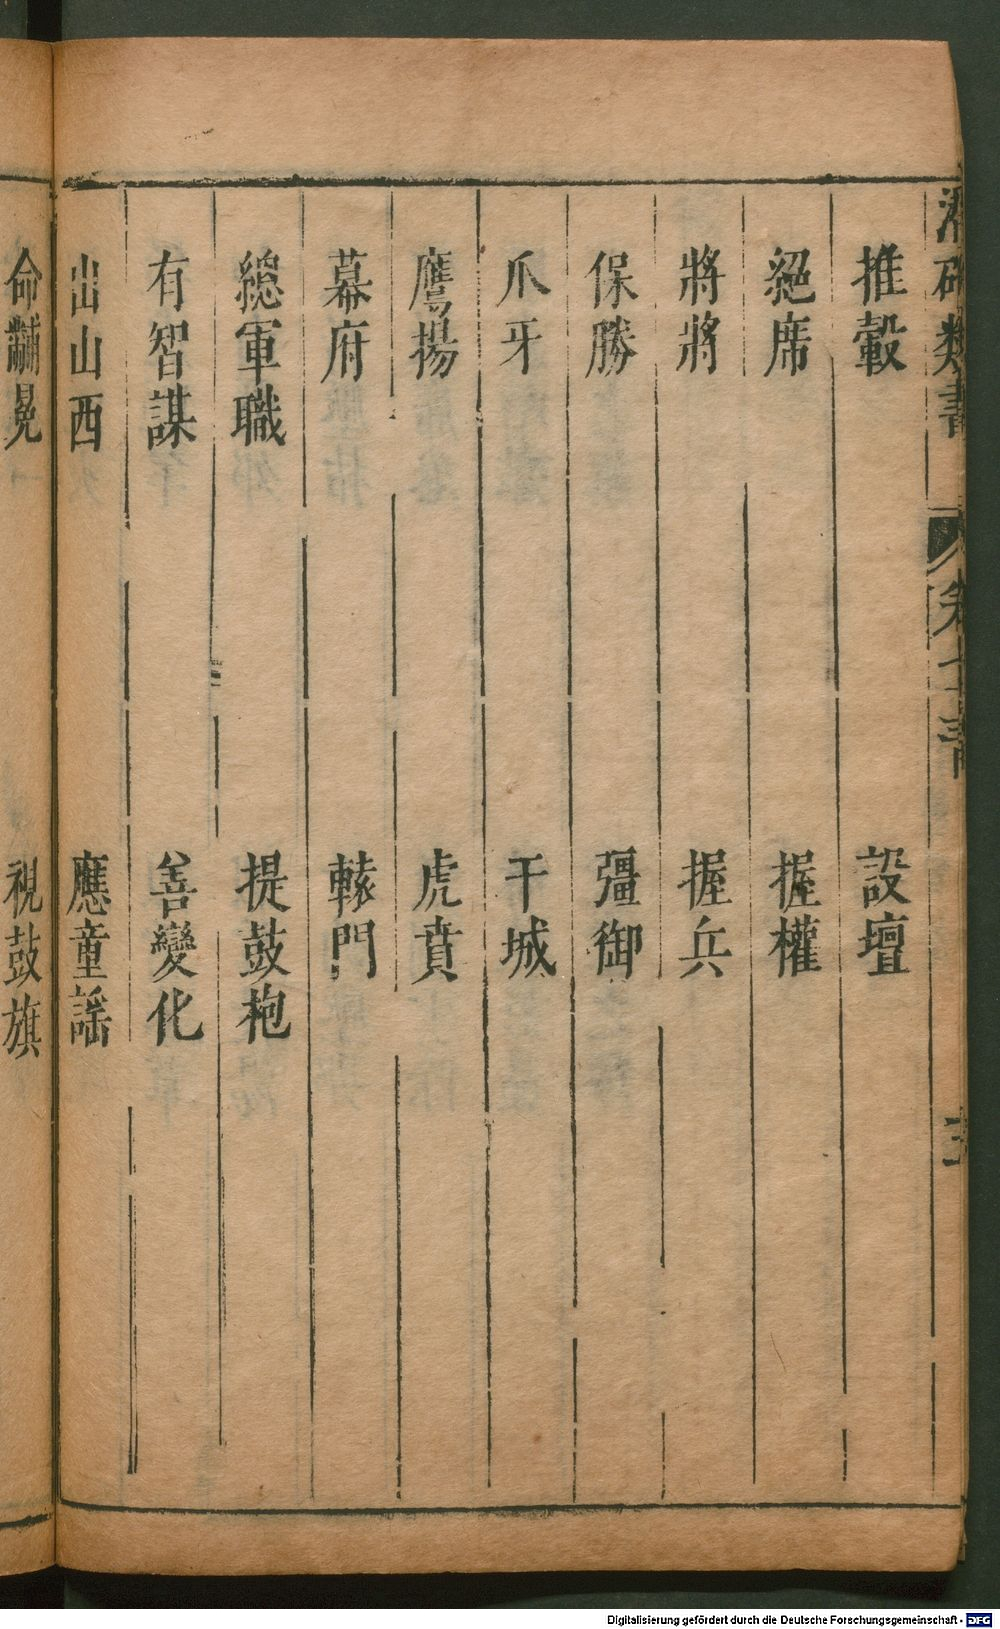 推轂
設壇
絕席
握權
將將
握兵
保勝
彊御
爪牙
干城
鷹揚
虎賁
幕府
轅門
總軍職
提鼓枹
有智謀
善變化
出山西
應童謠
命黼冕
視鼓旗
類書
Digitalisierung gefördert durch die Deutsche Forschungsgemeinschaft - DFG